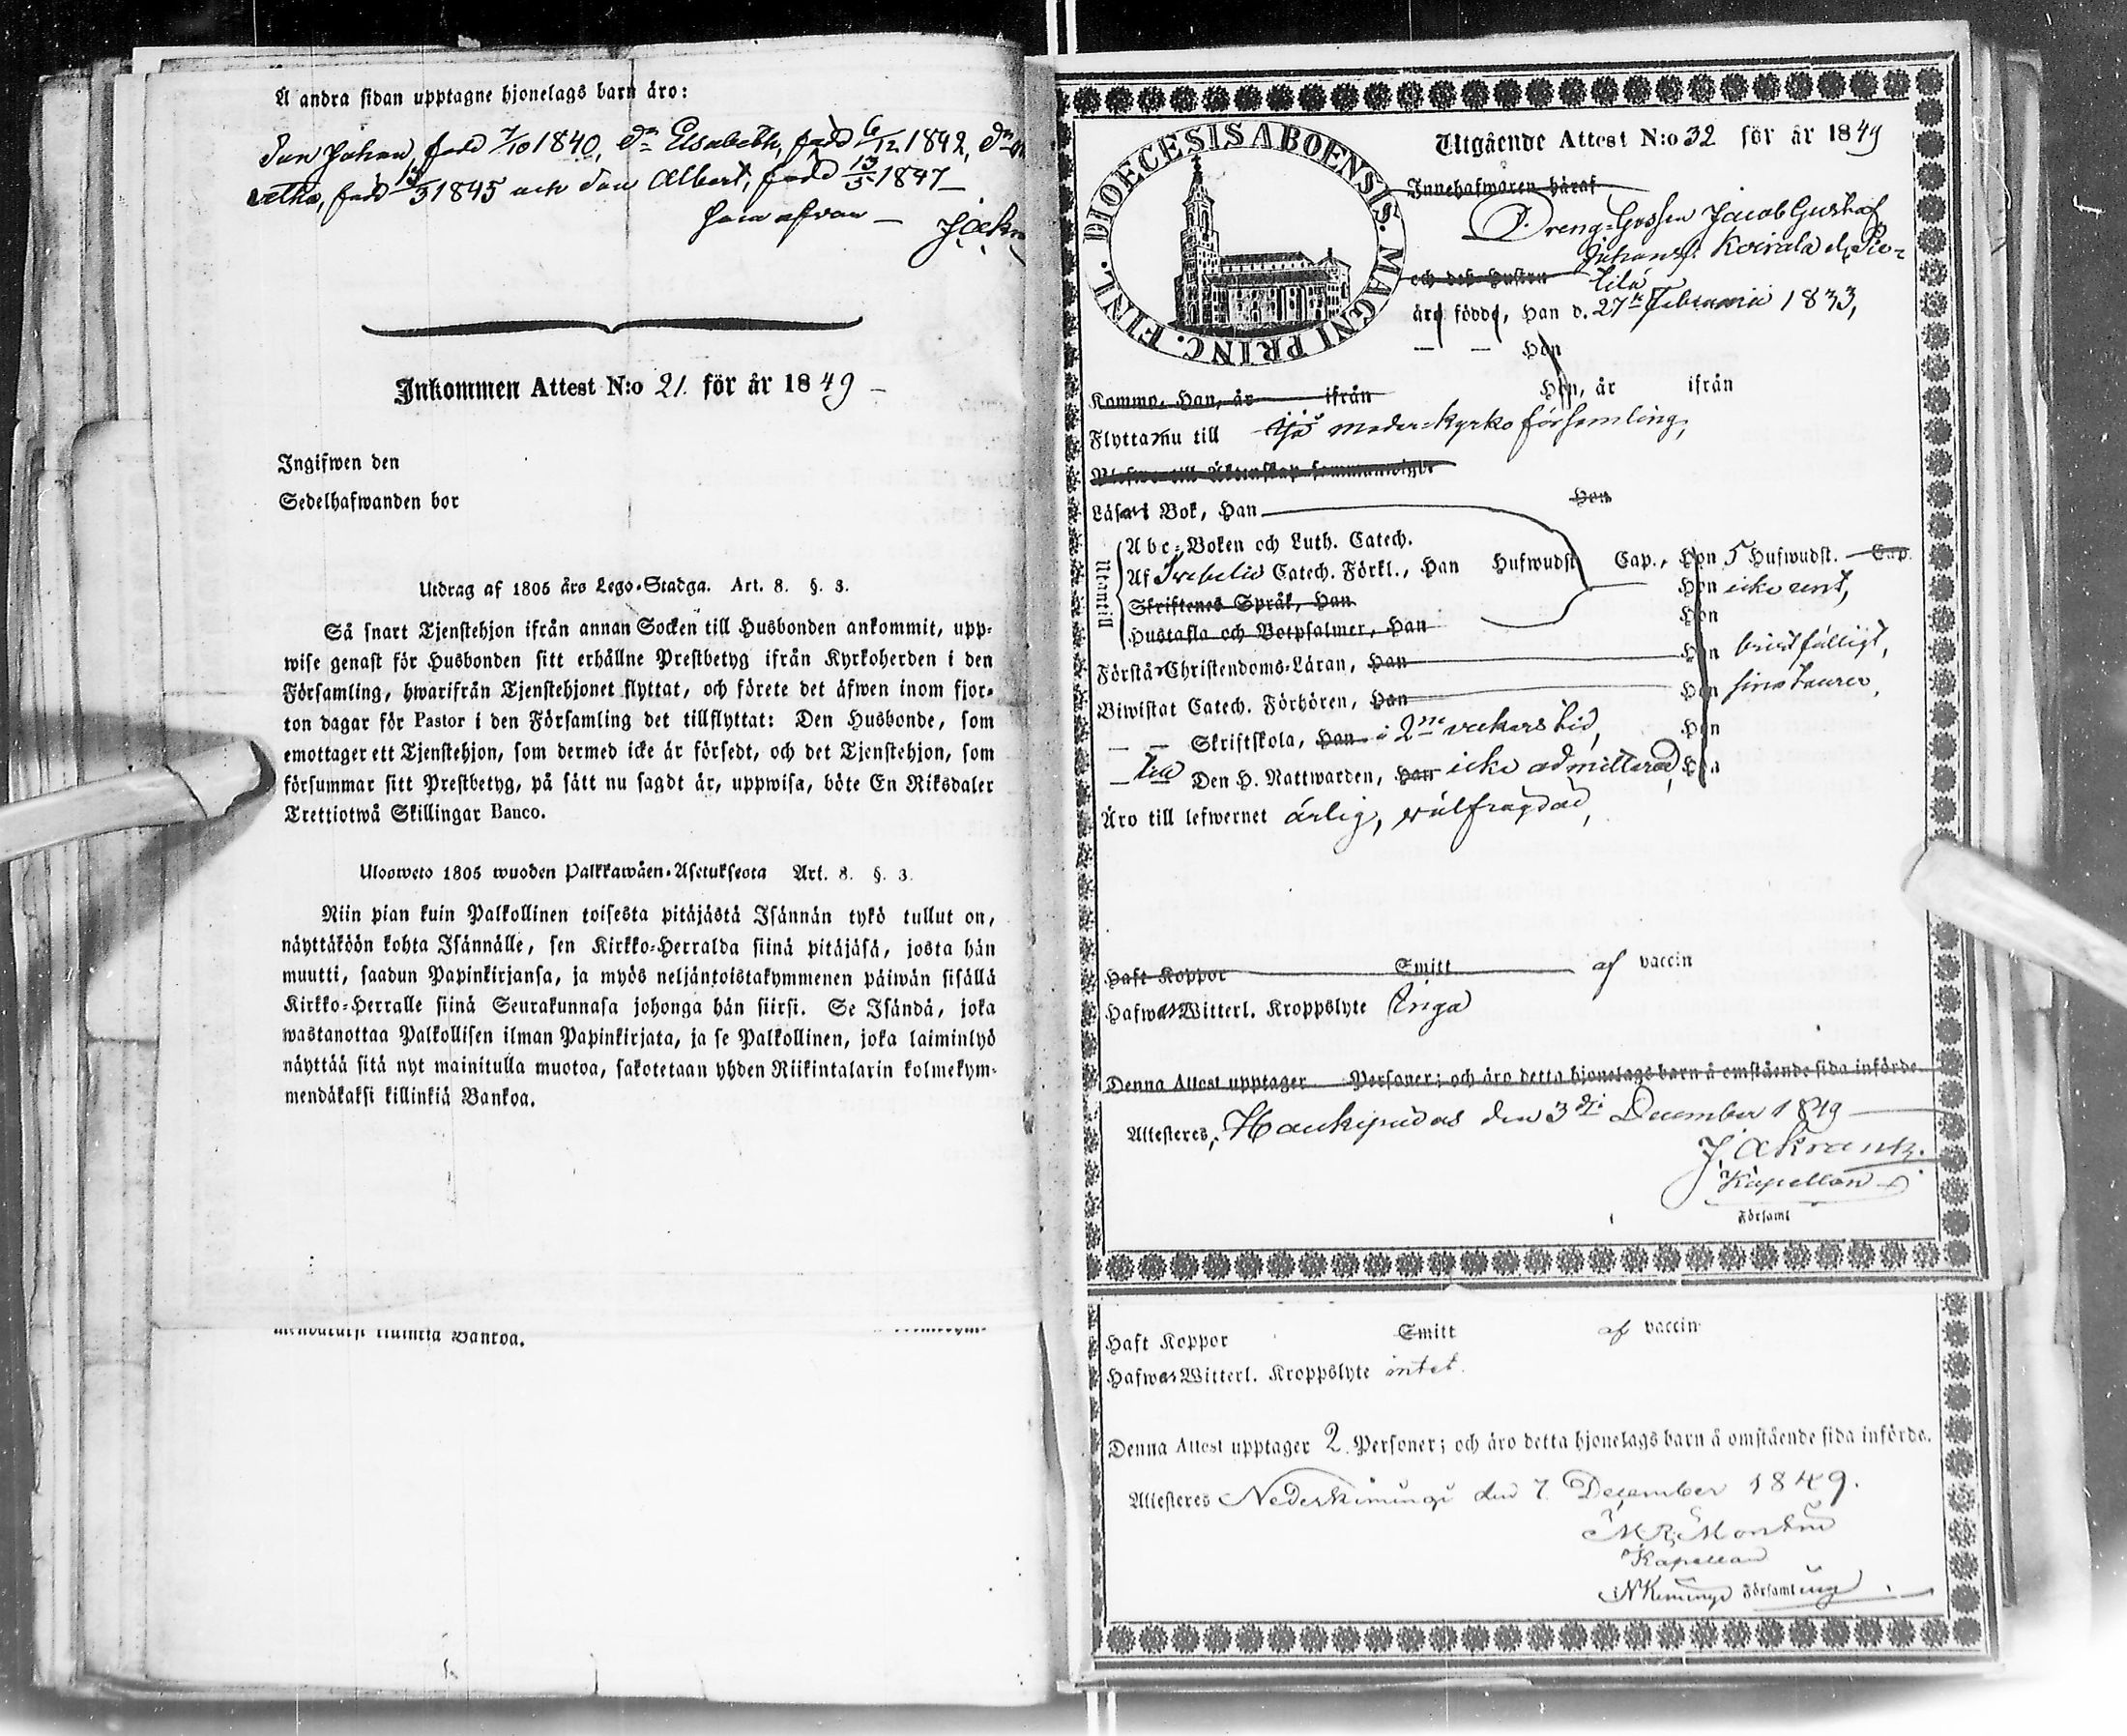 A andra sidan upptagne hjonelags barn äro:
Son Johan, född 7/10 1840, dr Elsabeth, född 6/12 1842, dr
retha, född 13/3 1845 och son Albert, född 13/5 1847 —
som ofvan —
Inkommen Attest N:o 21. för år 1849 —
Ingifwen den
Sedelhafwanden bor
Utdrag af 1805 års Lego-Stadga. Art. 8. §. 3.
Så snart Tjenstehjon ifrån annan Socken till Husbonden ankommit, upp-
wise genast för Husbonden sitt erhållne Prestbetyg ifrån Kyrkoherden i den
Församling, hwarifrån Tjenstehjonet flyttat, och förete det äfwen inom fjor-
ton dagar för Pastor i den Församling det tillflyttat: Den Husbonde, som
emottager ett Tjenstehjon, som dermed icke är försedt, och det Tjenstehjon, som
försummar sitt Prestbetyg, på sätt nu sagdt är, uppwisa, böte En Riksdaler
Trettiotwå Skillingar Banco.
Ulosweto 1805 wuoden Palkkawäen-Asetuksesta Art. 8. §. 3.
Niin pian kuin Palkollinen toisesta pitäjästä Isännän tykö tullut on,
näyttäköön kohta Isännälle, sen Kirkko-Herralda siinä pitäjäsä, josta hän
muutti, saadun Papinkirjansa, ja myös neljäntoistakymmenen päiwän sisällä
Kirkko-Herralle siinä Seurakunnasa johonga hän siirsi. Se Isändä, joka
wastanottaa Palkollisen ilman Papinkirjata, ja se Palkollinen, joka laiminlyö
näyttää sitä nyt mainitulla muotoa, sakotetaan yhden Riikintalarin kolmekym-
mendäkaksi killinkiä Bankoa.
Bankoa.
DIOECESIS ABOENSIS. MAGNI PRINC. FINL.
Utgående Attest N:o 32 för år 1849
Innehafwaren häraf
Dreng-Gossen Jacob Gustaf
Johansf. Koirala el.
och deß hustru
äro födde, Han d. 27de Februarii 1833,
— — Hon
Kommo, Han, år ifrån Hon, år ifrån
Flyttar nu till Ijo moder-kyrko församling,
Läser i Bok, Han Hon
Utantill
Abc-Boken och Luth. Catech.
Af Svebelii Catech. Förkl., Han Hufwudst. Cap., Hon 5 Hufwudst. Cap.
Skriftenes Språk, Han Hon icke rent,
Hustafla och Botpsalmer, Han Hon
Förstår Christendoms-Läran, Han Hon bristfälligt,
Biwistat Catech. Förhören, Han Hon
— — Skriftskola, Han i 2ne veckors tid, Hon
— Till Den H. Nattwarden, Han icke admitterad, Hon
Äro till lefwernet ärlig, wälfrägdad,
Haft Koppor Smitt af vaccin
Hafwer Witterl. Kroppslyte Inga
Denna Attest upptager Personer; och äro detta hjonelags barn å omstående sida införde.
Attesteres, Haukipudas den 3dje December 1849 —
J. A. Krank.
Kapellan
Församl
Haft Koppor Smitt af vaccin
Hafwer Witterl. Kroppslyte intet.
Denna Attest upptager 2. Personer; och äro detta hjonelags barn å omstående sida införde.
Attesteres Nederkiminge den 7. December 1849.
Kapellan
NKiminge Församling